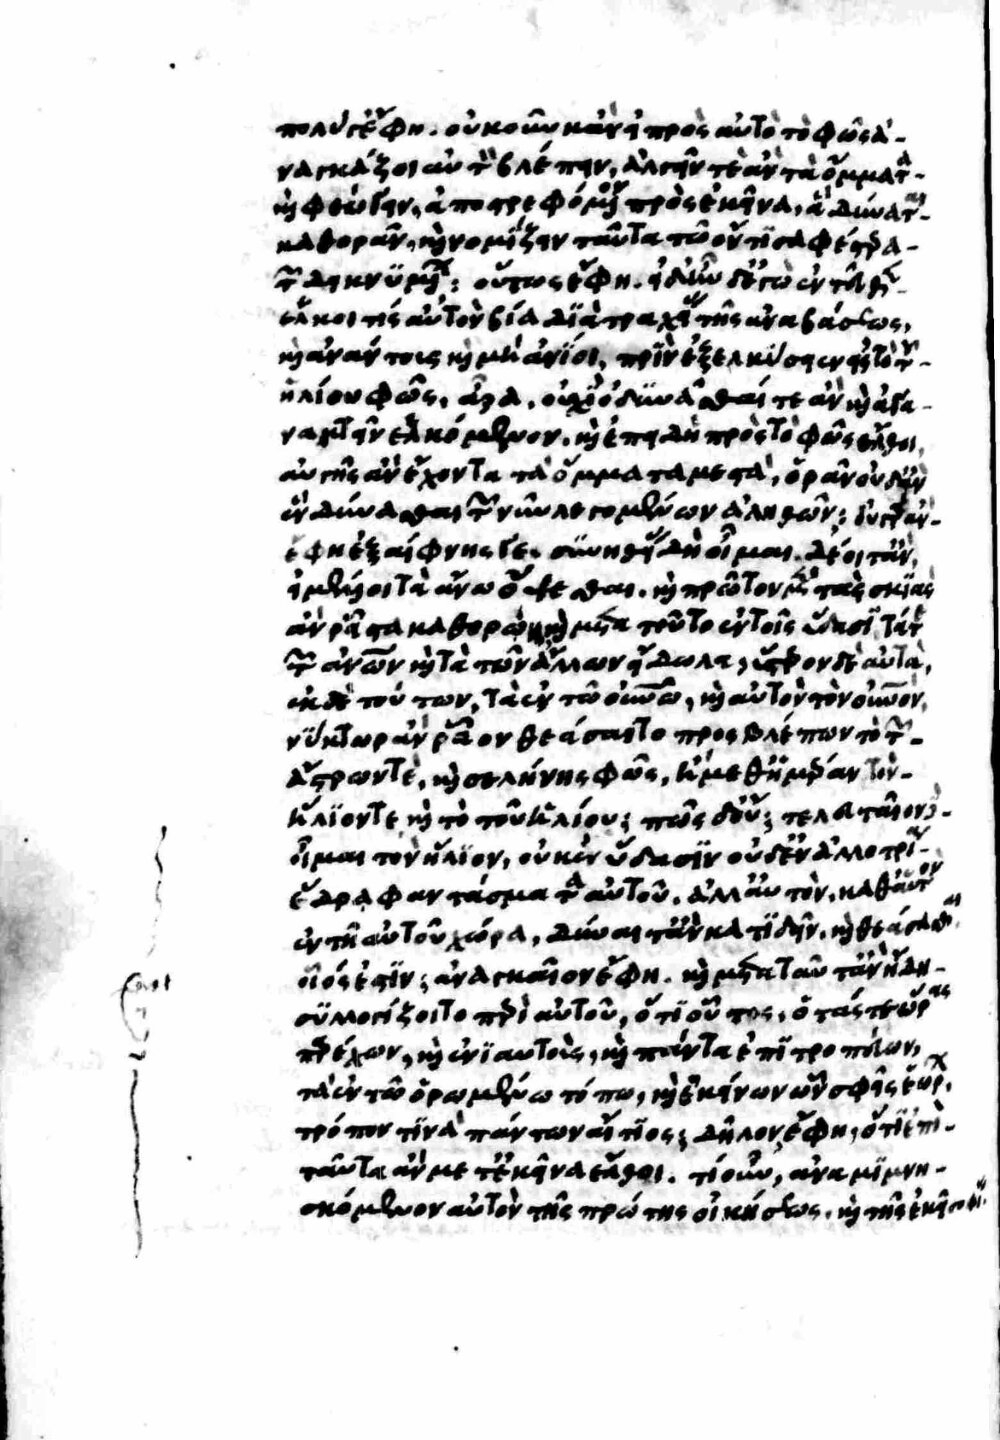 πολύ γ' ἔφη. οὐκοῦν κἂν εἰ πρὸς αὐτὸ τὸ φῶς ἀ-
ναγκάζοι αὐτὸν βλέπειν, ἀλγεῖν τε ἂν τὰ ὄμματα
καὶ φεύγειν, ἀποστρεφόμενον πρὸς ἐκεῖνα, ἃ δύναται
καθορᾶν, καὶ νομίζειν ταῦτα τῷ ὄντι σαφέστερα
τῶν δεικνυμένων; οὕτως ἔφη. εἰ δὲ ἐντεῦθεν
ἕλκοι τις αὐτὸν βίᾳ διὰ τραχείας τῆς ἀναβάσεως,
καὶ ἀνάντους καὶ μὴ ἀνίοι, πρὶν ἐξελκύσειεν εἰς τὸ τοῦ
ἡλίου φῶς, ἆρα, οὐχὶ ὀδυνᾶσθαί τε ἂν καὶ ἀγα-
νακτεῖν ἑλκόμενον. καὶ ἐπειδὴ πρὸς τὸ φῶς ἔλθοι,
αὐγῆς ἂν ἔχοντα τὰ ὄμματα μεστὰ, ὁρᾶν οὐδ' ἂν
ἓν δύνασθαι τῶν νῦν λεγομένων ἀληθῶν; οὐ γὰρ ἂν
ἔφη ἐξαίφνης γε. συνηθείας δὴ οἶμαι. δέοιτ' ἂν,
εἰ μέλλοι τὰ ἄνω ὄψεσθαι. καὶ πρῶτον μὲν τὰς σκιὰς
ἂν ῥᾷστα καθορῴη, καὶ μετὰ τοῦτο ἐν τοῖς ὕδασι τά τε
τῶν ἀνων καὶ τὰ τῶν ἄλλων εἴδωλα, ὕστερον δὲ αὐτά,
ἐκ δὲ τούτων, τὰ ἐν τῷ οὐνῷ, καὶ αὐτὸν τὸν οὐνὸν,
νύκτωρ ἂν ῥᾷον θεάσαιτο προσβλέπων τὸ τῶν
ἄστρων τε, καὶ σελήνης φῶς, ἢ μεθ' ἡμέραν τὸν
ἥλιόν τε καὶ τὸ τοῦ ἡλίου; πῶς δ' οὔ; τελευταῖον δὴ
οἶμαι τὸν ἥλιον, οὐκ ἐν ὕδασιν οὐδ' ἐν ἀλλοτρίᾳ
ἕδρᾳ φαντάσματα αὐτοῦ. ἀλλ' αὐτὸν, καθ' αὑτὸν
ἐν τῇ αὐτοῦ χώρᾳ, δύναιτ' ἂν κατιδεῖν, καὶ θεάσασθαι
οἷός ἐστιν; ἀναγκαῖον ἔφη. καὶ μετὰ ταῦτ' ἂν ἤδη
συλλογίζοιτο περὶ αὐτοῦ, ὅτι οὗτος, ὁ τάς τε ὥρας
παρέχων, καὶ ἐνιαυτοὺς, καὶ πάντα ἐπιτροπεύων,
τὰ ἐν τῷ ὁρωμένῳ τόπῳ, καὶ ἐκείνων ὧν σφεῖς ἑώρων
τρόπον τινὰ πάντων αἴτιος; δῆλον, ἔφη, ὅτι ἐπὶ
ταῦτα ἂν μετ' ἐκεῖνα ἔλθοι. τί οὖν, ἀναμιμνη-
σκόμενον αὐτὸν τῆς πρώτης οἰκήσεως, καὶ τῆς ἐκεῖ σοφίας